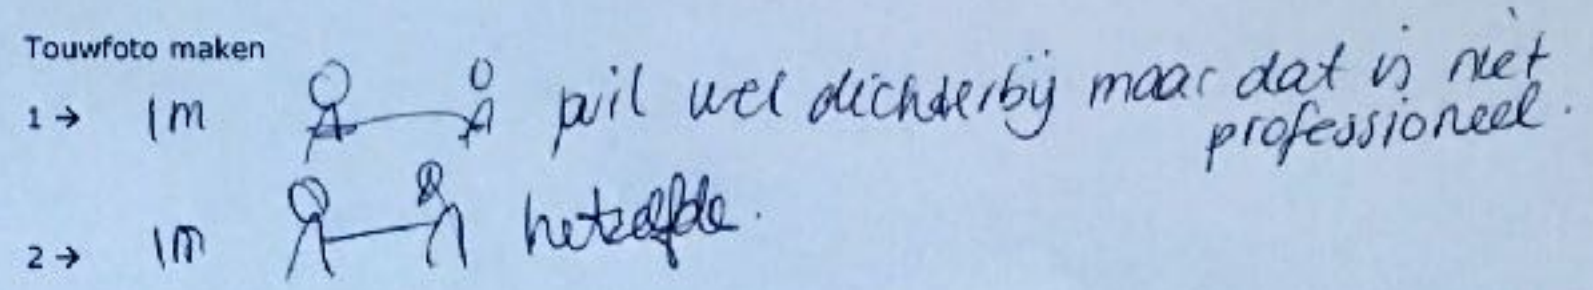 Touwfoto maken
1 → 1m wil wel dichterbij maar dat is niet
professioneel.
2 → 1m hetzelfde.